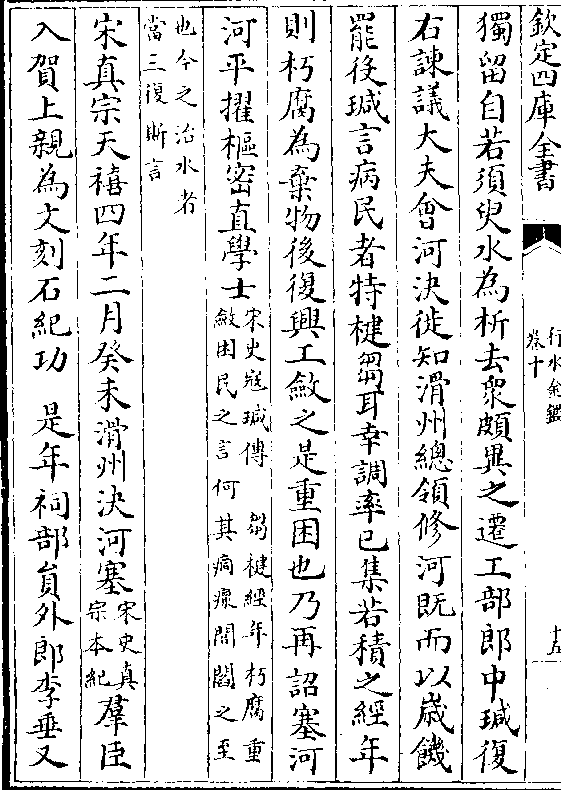 欽定四庫全書
行水金鑑
卷十
十五
獨留自若須臾水為析去衆頗異之遷工部郎中瑊復
右諫議大夫會河決徙知滑州總領修河既而以歲饑
罷役瑊言病民者特楗芻耳幸調率已集若積之經年
則朽腐為棄物後復興工斂之是重困也乃再詔塞河
河平擢樞密直學士
宋史寇瑊傳　芻楗經年朽腐重
斂困民之言何其痌瘝閭閻之至
也今之治水者
當三復斯言
宋真宗天禧四年二月癸未滑州決河塞
宋史真
宗本紀
羣臣
入賀上親為文刻石紀功　是年祠部員外郎李垂又